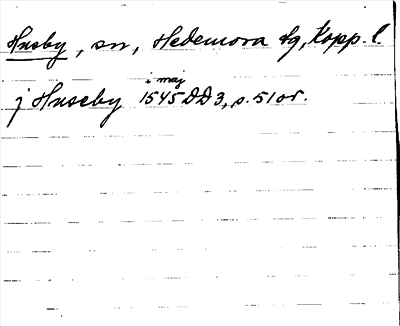 Husby, sn, Hedemora tg, Kopp. l.
i maj
j Huseby 1545 DD 3, s. 51 or.